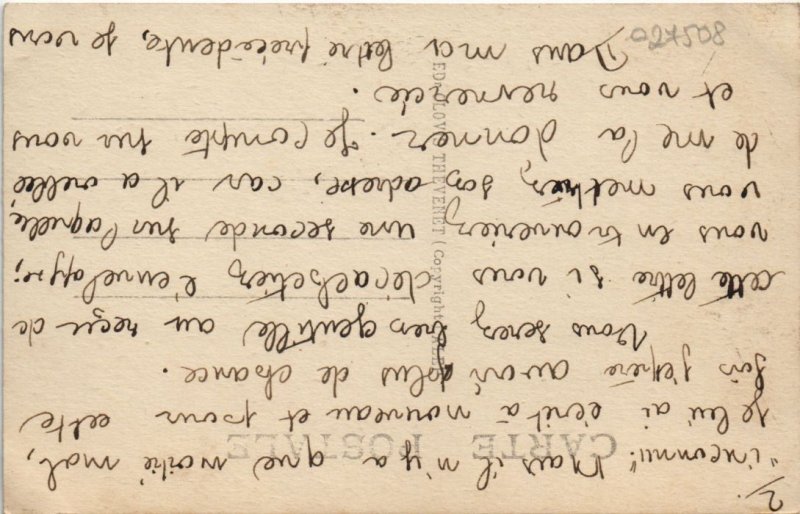 2/.
"inconnu". Mais il n'y a que moitié mal,
je lui ai écrit à nouveau et pour cette
fois j'espère avoir plus de chance.
Vous serez très gentille au reçu de
cette lettre si vous décachetiez l'enveloppe;
vous en trouveriez une seconde sur laquelle
vous mettriez son adresse, car il a
de me la donner. Je compte sur vous
et vous remercie.
Dans ma lettre précédente, je vous
CARTE POSTALE
THEVENET (Copyright
027508